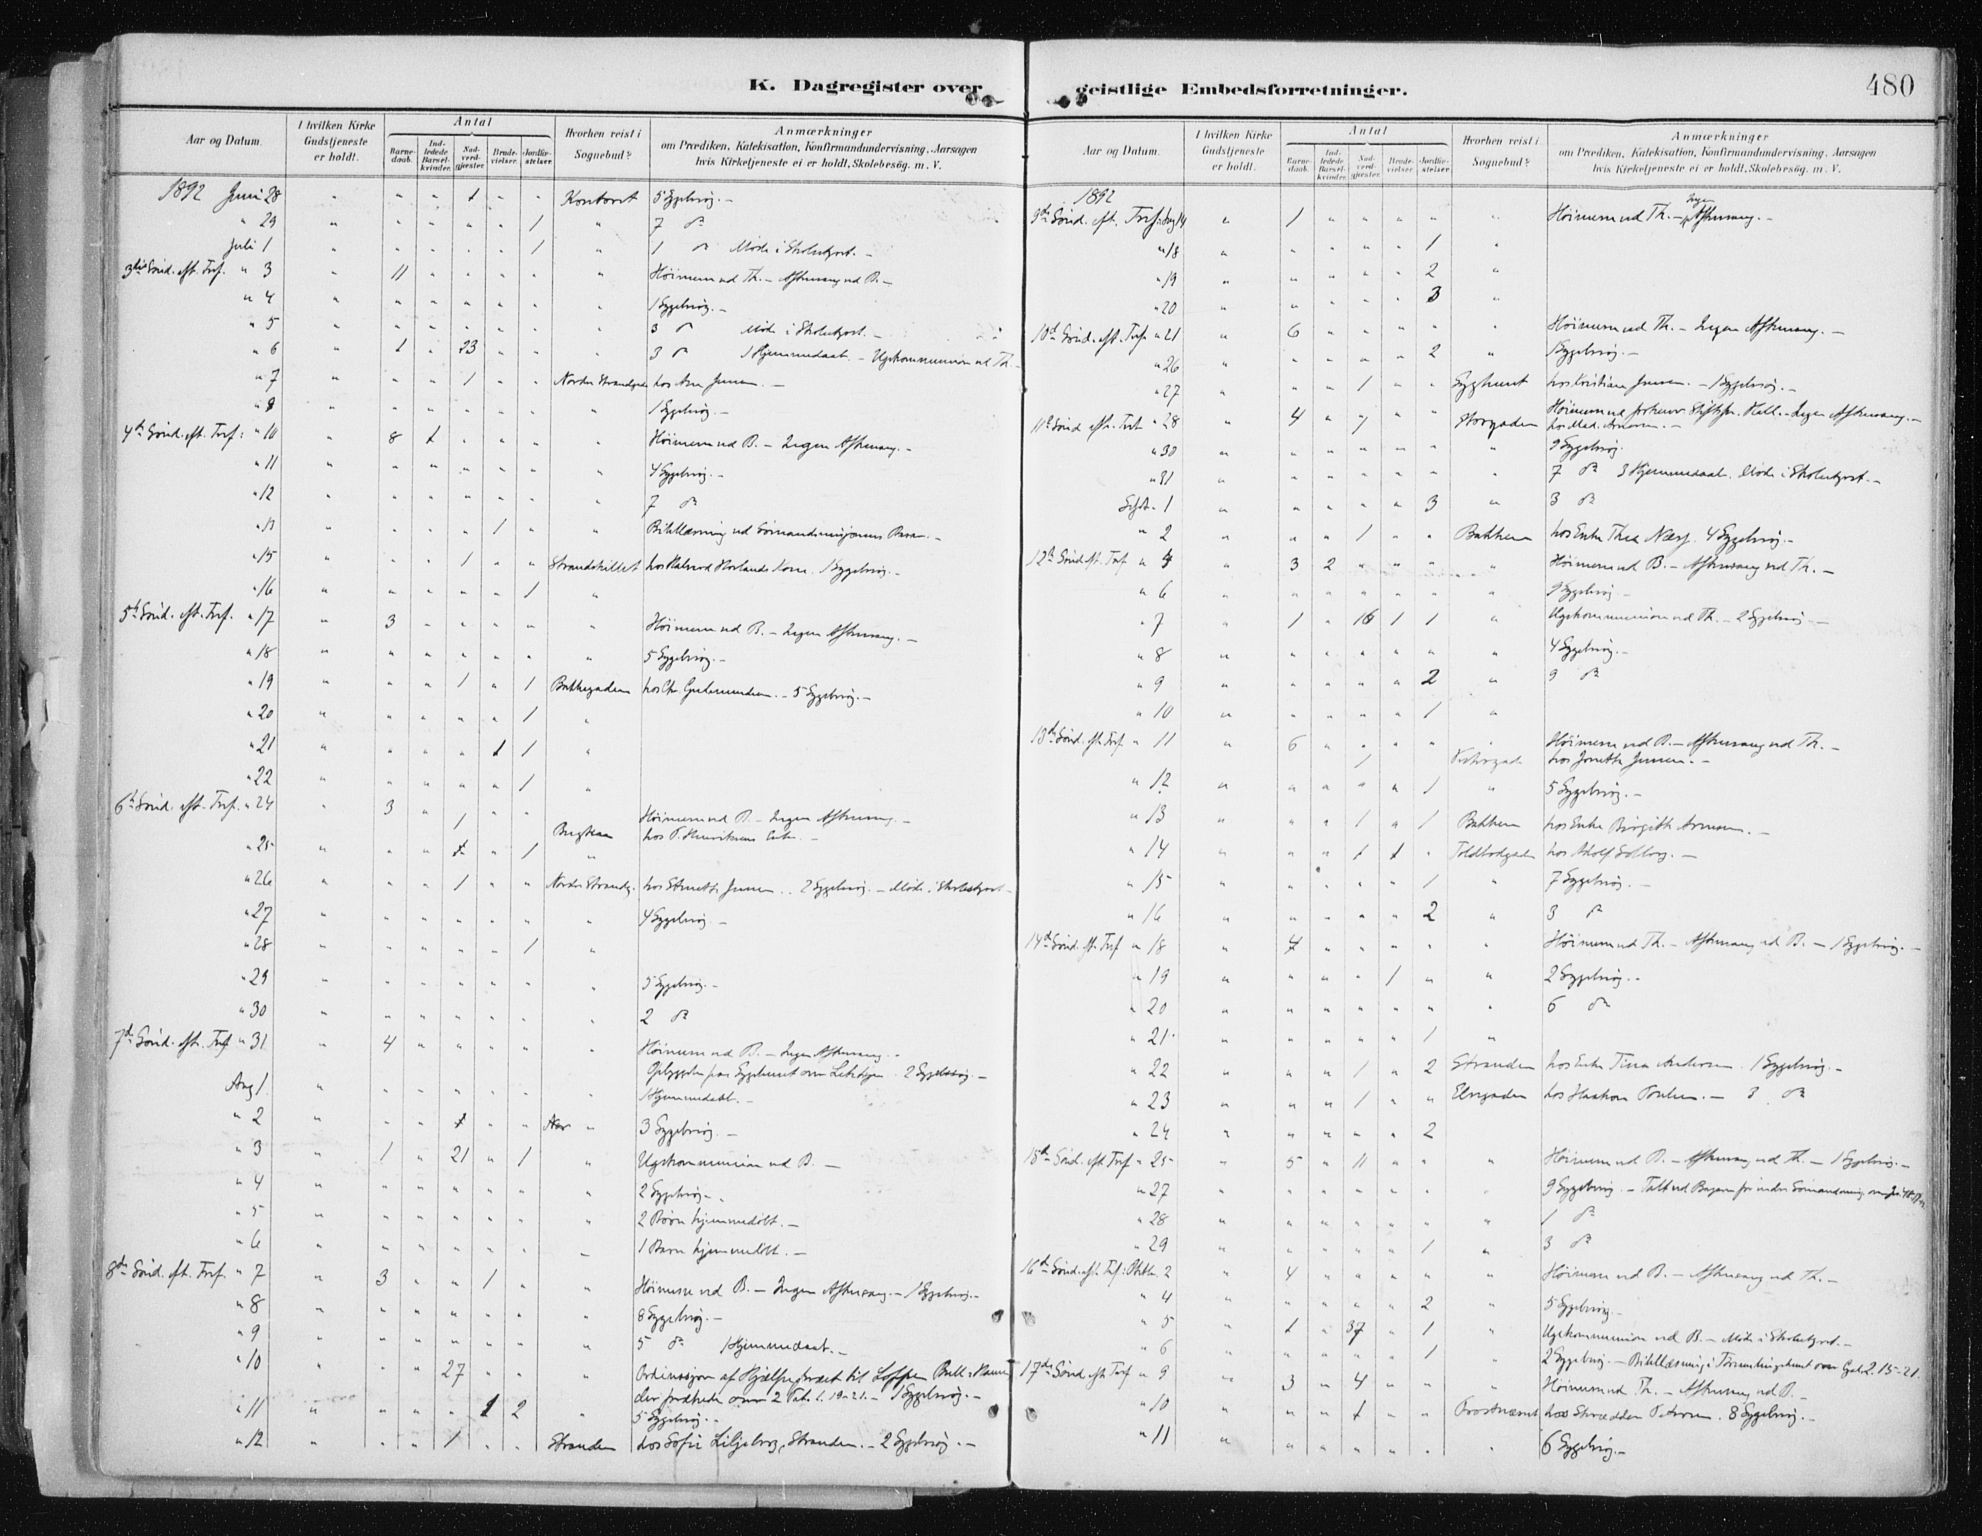 K. Dagregister over
geistlige Embedsforretninger.
480
Aar og Datum.
I hvilken Kirke Gudstjeneste er holdt.
Antal
Barnedaab.
Indledede Barselkvinder.
Nadverdgjester.
Brudevielser.
Jordfæstelser.
Hvorhen reist i Sognebud?
Anmærkninger
om Prædiken, Katekisation, Konfirmandundervisning, Aarsagen
hvis Kirketjeneste ei er holdt, Skolebesøg. m. V.
1892 Juni 28 " " " 1 " " Kontoret 5 Sygebesøg.-
" 29 " " " " " 1 " 7 do
Juli 1 " " " " " 1 " 1 do Møde i Skolestyret.-
3die Sønd. eft. Tref. " 3 " 11 " " " " " Høimesse ved Th. - Aftensang ved B.-
" 4 " " " " " " " 1 Sygebesøg.-
" 5 " " " " " " " 3 do Møde i Skolestyret.-
" 6 " 1 " 23 " " " 3 do 1 Hjemmedaab - Ugekommunion ved Th.
" 7 " " " 1 " " Nordre Strandgade hos Jensen.-
" 8 " " " " " " " 1 Sygebesøg.-
4de Sønd. eft. Tref: " 10 " 8 1 " " " " Høimesse ved B. - Ingen Aftensang.-
" 11 " " " " " " " 4 Sygebesøg.-
" 12 " " 7 do
" 13 " " " " 1 " " Bibellæsning ved Sømandsmissionens
" 15 " " " 1 " " Strandskillet hos 1 Sygebesøg.-
" 16 " " " " " 1 "
5te Sønd. eft. Tref. " 17 " 3 " " " " " Høimesse ved B. - Ingen Aftensang.-
" 18 " " " " " " " 5 Sygebesøg.-
" 19 " " " 1 " 1 Bakkegaden hos Chr. Gudmundsen. - 5 Sygebesøg.-
" 20 " " " " " 1 "
" 21 " " " " 1 1 "
" 22 " " " " " 1
6te Sønd. eft. Tref. " 24 " 3 " 1 " " Høimesse ved B. - Ingen Aftensang.-
hos P. Henriksens Enke.-
" 25 " " " 1 " 1 "
" 26 " " " 1 " " Nordre Strandg. hos Jensen. 2 Sygebesøg. - Møde i Skolestyret -
" 27 " " " " " " " 4 Sygebesøg.-
" 28 " " " " " 1 "
" 29 " " " " " " " 5 Sygebesøg.-
" 30 " " " " " " " 2 do
7de Sønd. eft. Tref " 31 " 4 " " " " " Høimesse ved B. - Ingen Aftensang.-
paa Sygehuset 2 Sygebesøg.-
Aug 1. " " 1 Hjemmedaab.-
" 2 " " " 1 " " " 3 Sygebesøg.-
" 3 " 1 " 21 " 1 " Ugekommunion ved B.-
" 4 " " " " " " " 2 Sygebesøg.-
" 5 " " " " " " " 2 Børn hjemmedøbt.-
" 6 " " " " " " " 1 Barn hjemmedøbt.-
8de Sønd. eft. Tref. " 7 " 3 " " 1 " " Høimesse ved B. - Ingen Aftensang. - 1 Sygebesøg.-
" 8 " " " " " " " 8 Sygebesøg.-
" 9 " " " " " " " 5 do 1 Hjemmedaab.-
" 10 " " " 27 " " " Ordinasjon af Hjælpepræst til Loppen
der prædikede over 2 19-21.- 1 Sygebesøg.-
" 11 " " " " 1 2 " 5 Sygebesøg.-
" 12 " " " 1 " " Stranden hos Sofie Liljeborg, Stranden. - 2 Sygebesøg.-
Aar og Datum.
I hvilken Kirke Gudstjeneste er holdt.
Antal
Barnedaab.
Indledede Barselkvinder.
Nadverdgjester.
Brudevielser.
Jordfæstelser.
Hvorhen reist i Sognebud?
Anmærkninger
om Prædiken, Katekisation, Konfirmandundervisning, Aarsagen
hvis Kirketjeneste ei er holdt, Skolebesøg. m. V.
1892
9de Sønd. eft. Tref: Aug 14 " 1 " " " " " Høimesse ved Th. - Ingen Aftensang.-
" 18 " " " " 1 "
" 19 " " " " " 2 "
" 20 " " " " " 3 "
10de Sønd. eft. Tref. " 21 " 6 " " " " " Høimesse ved Th. - Ingen Aftensang.-
" 26 " " " " " 2 " 1 Sygebesøg.-
" 27 " " " 1 " " Sygehuset hos Kristian Jensen. - 1 Sygebesøg.-
11te Sønd eft. Tref. " 28 " 4 " " " Storgaden Høimesse ved Stiftspr. - Ingen Aftensang.-
hos Mad. -
" 30 " " " " " " " 9 Sygebesøg.
" 31 " " " " " " " 7 do 3 Hjemmedaab. Møde i Skolestyret.-
Septb. 1 " " " " " 3 " 3 do
" 2 " " " 1 " " Bakken hos Enke Thea Næss. 4 Sygebesøg.-
12te Sønd eft. Tref " 4 " 3 2 " " " " Høimesse ved B. - Aftensang ved Th.-
" 6 " " " " " " " 9 Sygebesøg.-
" 7 " 1 " 16 1 1 " Ugekommunion ved Th. - 2 Sygebesøg.-
" 8 " " " " " " " 4 Sygebesøg.-
" 9 " " " " " 2 " 9 do
" 10 " " " " " 1 "
13de Sønd. eft. Tref. " 11 " 6 " " " " " Høimesse ved B. - Aftensang ved Th.-
1 hos Jonetta Jensen.-
" 12 " " " " " 1 " 5 Sygebesøg.-
" 13 " " 1 " 1 Bakken hos Enke Birgitte -
" 14 " " " 1 1 " Toldbodgaden hos Adolf Solberg.-
" 15 " " " " " 1 " 7 Sygebesøg.-
" 16 " " " " " 2 " 3 do
14de Sønd. eft. Tref " 18 " 4 " " " " " Høimesse ved Th. - Aftensang ved B. - 1 Sygebesøg.-
" 19 " " " " 1 " " 2 Sygebesøg.-
" 20 " " " " " " " 6 do
" 21 " " " " " 1 "
" 22 " " " 1 " 2 Stranden hos Enke Tina Andersen. 1 Sygebesøg.-
" 23 " " " 1 " " Elvegaden hos Haakon Poulsen. - 3 do
" 24 " " " " " 2
15de Sønd. eft. Tref " 25 " 5 " 11 " " " Høimesse ved B. - Aftensang ved Th. - 1 Sygebesøg.-
" 27 " " " " " " " 9 Sygebesøg. - Talt ved
" 28 " " " " " " " 1 do
" 29 " " " " " 1 " 3 do
16de Sønd. eft. Tref: Oktbr. 2 " 4 " " " " " Høimesse ved B. - Aftensang ved Th.-
" 4 " " " " " 2 " 5 Sygebesøg.-
" 5 " 1 " 37 " 1 " Ugekommunion ved B. - Møde i Skolestyret.-
" 6 " " " " " 1 " 2 Sygebesøg. - Bibellæsning i over Gal. 2. 15-21.
17de Sønd. eft. Tref " 9 " 3 " 4 " " " Høimesse ved Th. - Aftensang ved B.-
" 10 " " " 1 " " hos Skrædder 8 Sygebesøg.-
" 11 " " " " " " " 6 Sygebesøg.-